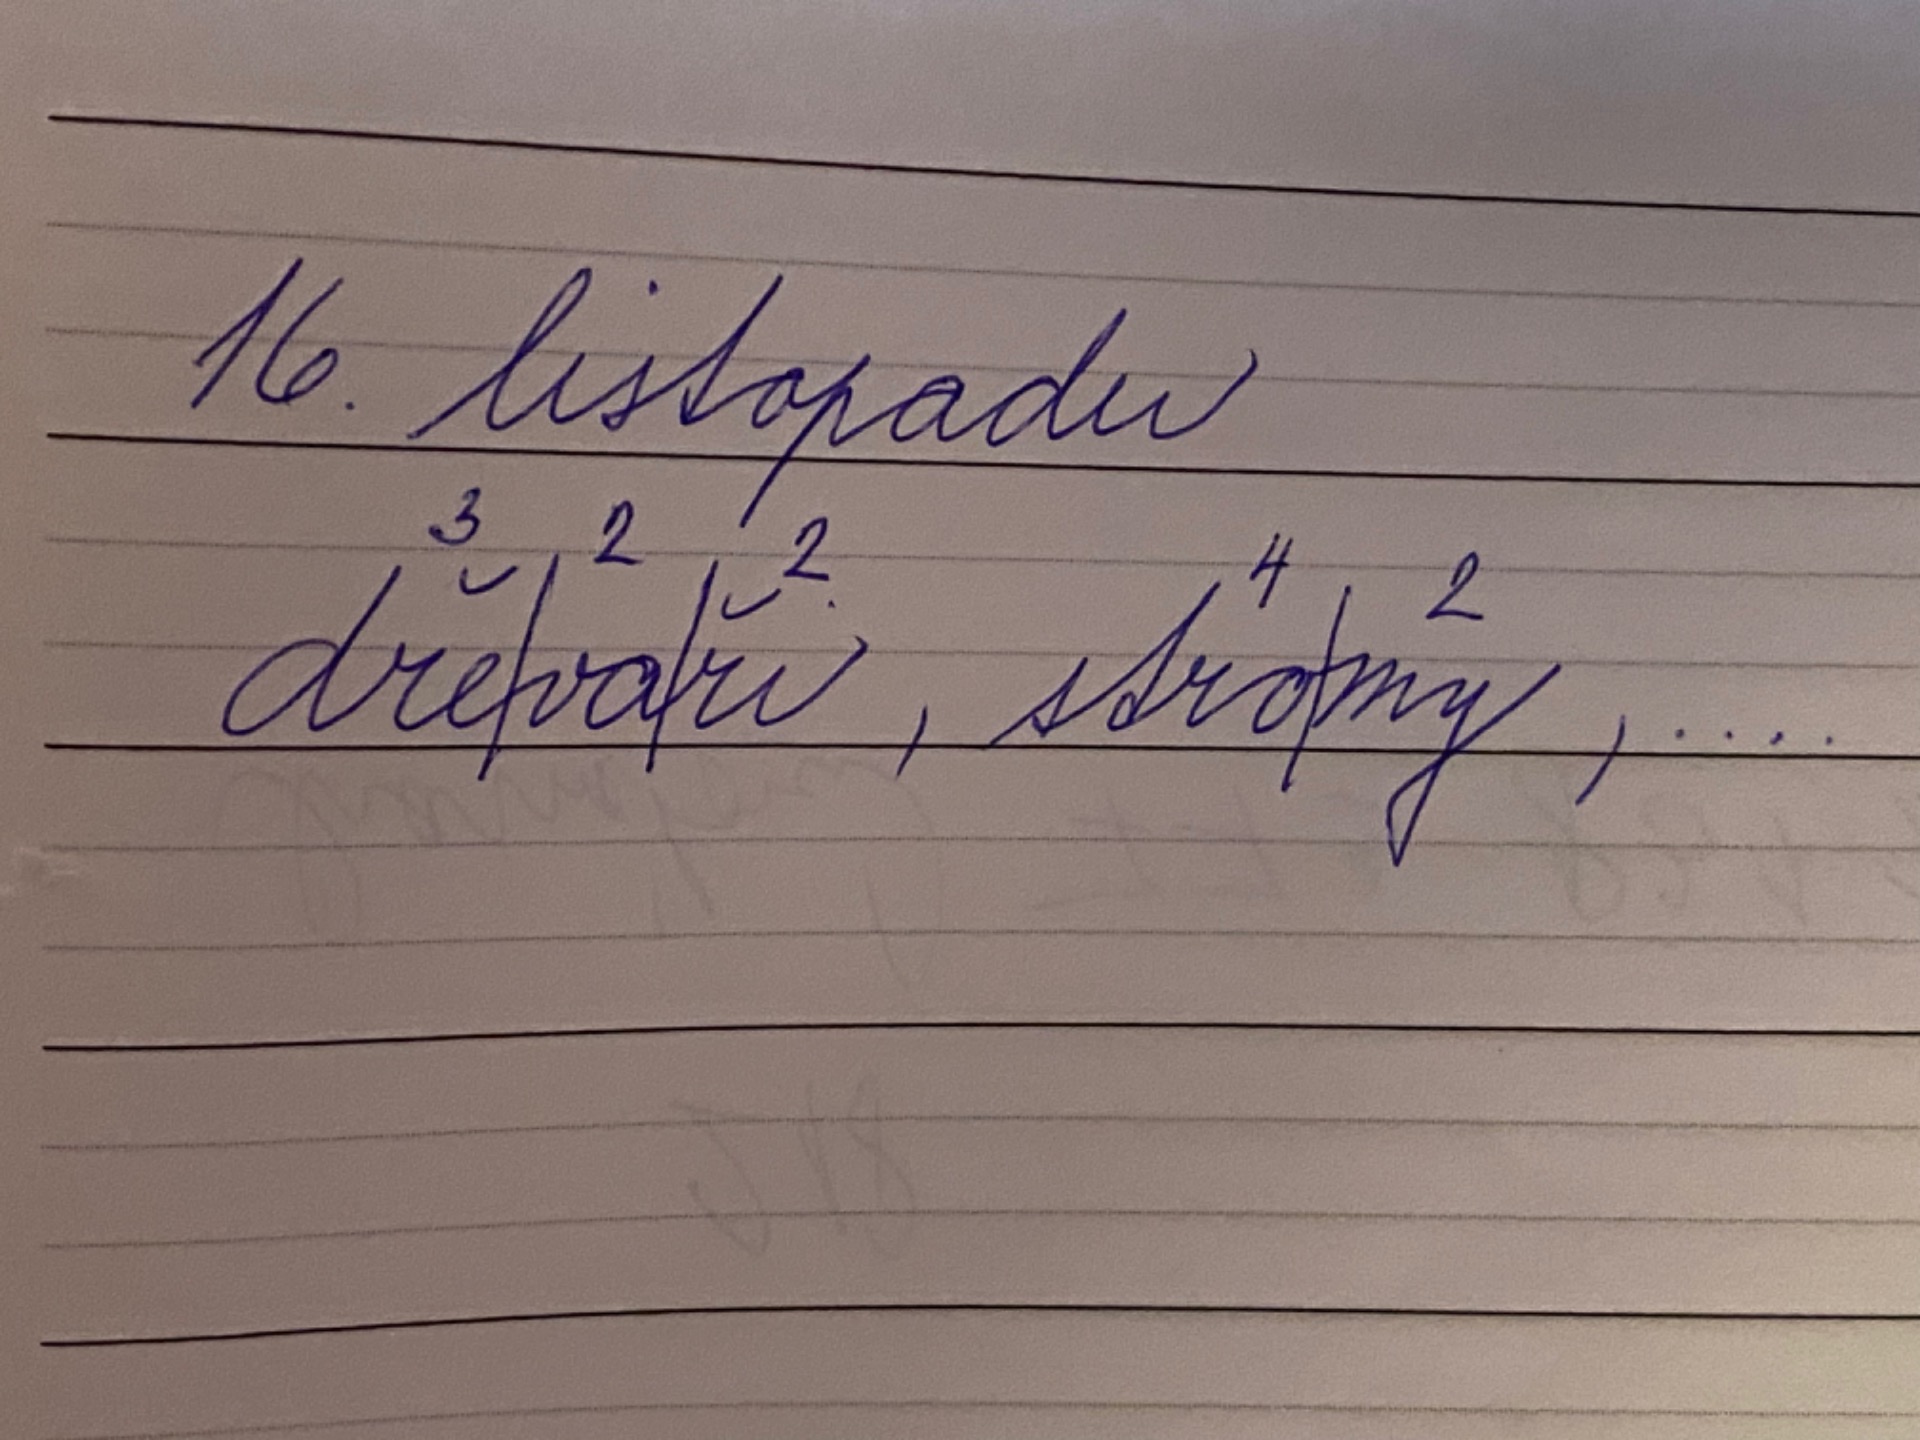 16. listopadu
3 2 2 4 2
dře/va/ři, stro/my, ....